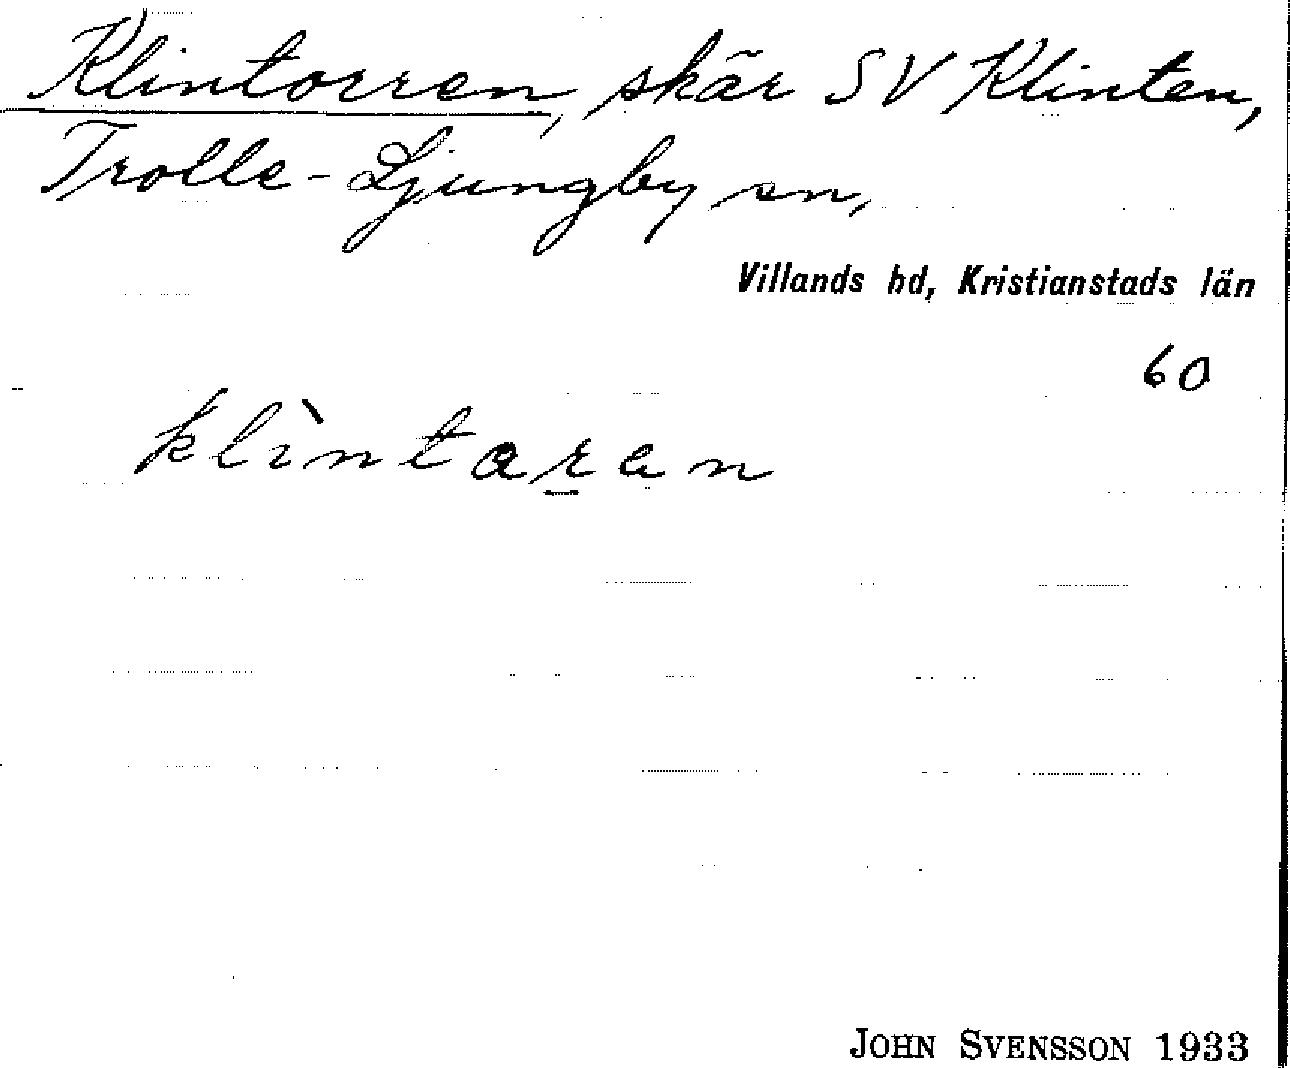 Klintorren, skär SV Klinten,
Trolle-Ljungby sn,
Villands hd, Kristianstads län
60
klìntaran
JOHN SVENSSON 1933